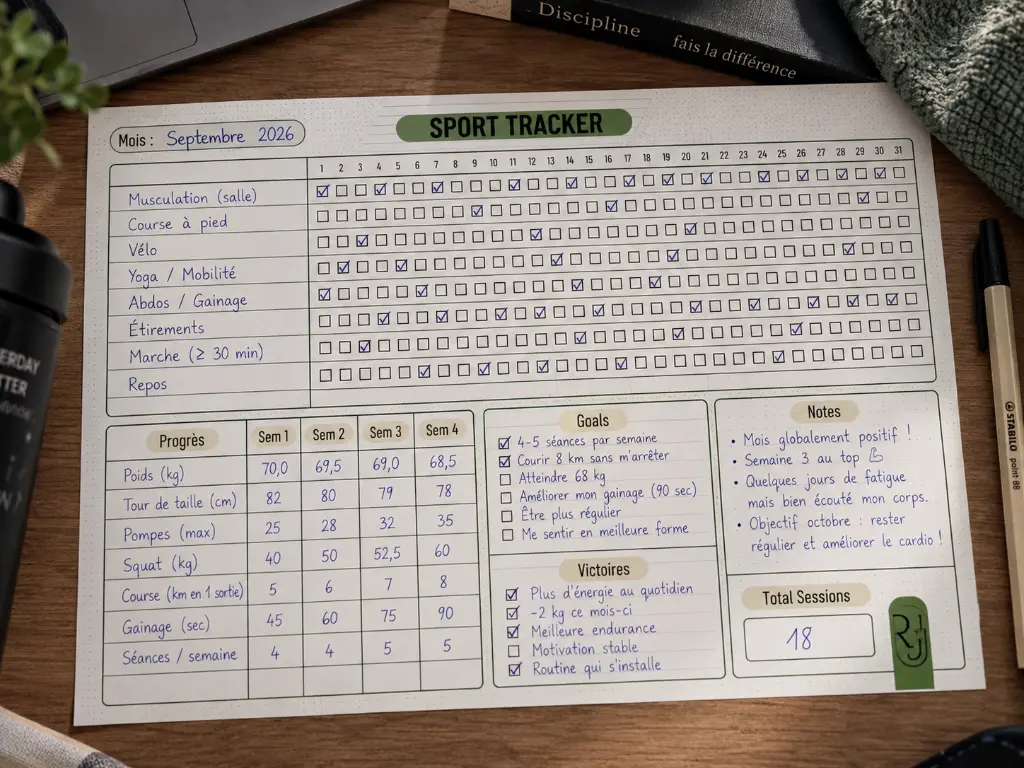 Discipline
fais la différence
Mois : Septembre 2026
SPORT TRACKER
1 2 3 4 5 6 7 8 9 10 11 12 13 14 15 16 17 18 19 20 21 22 23 24 25 26 27 28 29 30 31
Musculation (salle)
Course à pied
Vélo
Yoga / Mobilité
Abdos / Gainage
Étirements
Marche (≥ 30 min)
Repos
Progrès Sem 1 Sem 2 Sem 3 Sem 4
Poids (kg) 70,0 69,5 69,0 68,5
Tour de taille (cm) 82 80 79 78
Pompes (max) 25 28 32 35
Squat (kg) 40 50 52,5 60
Course (km en 1 sortie) 5 6 7 8
Gainage (sec) 45 60 75 90
Séances / semaine 4 4 5 5
Goals
4-5 séances par semaine
Courir 8 km sans m'arrêter
Atteindre 68 kg
Améliorer mon gainage (90 sec)
Être plus régulier
Me sentir en meilleure forme
Victoires
Plus d'énergie au quotidien
-2 kg ce mois-ci
Meilleure endurance
Motivation stable
Routine qui s'installe
Notes
• Mois globalement positif !
• Semaine 3 au top
• Quelques jours de fatigue
mais bien écouté mon corps.
• Objectif octobre : rester
régulier et améliorer le cardio !
Total Sessions
18
STABILO
point 88
ERDAY
TTER